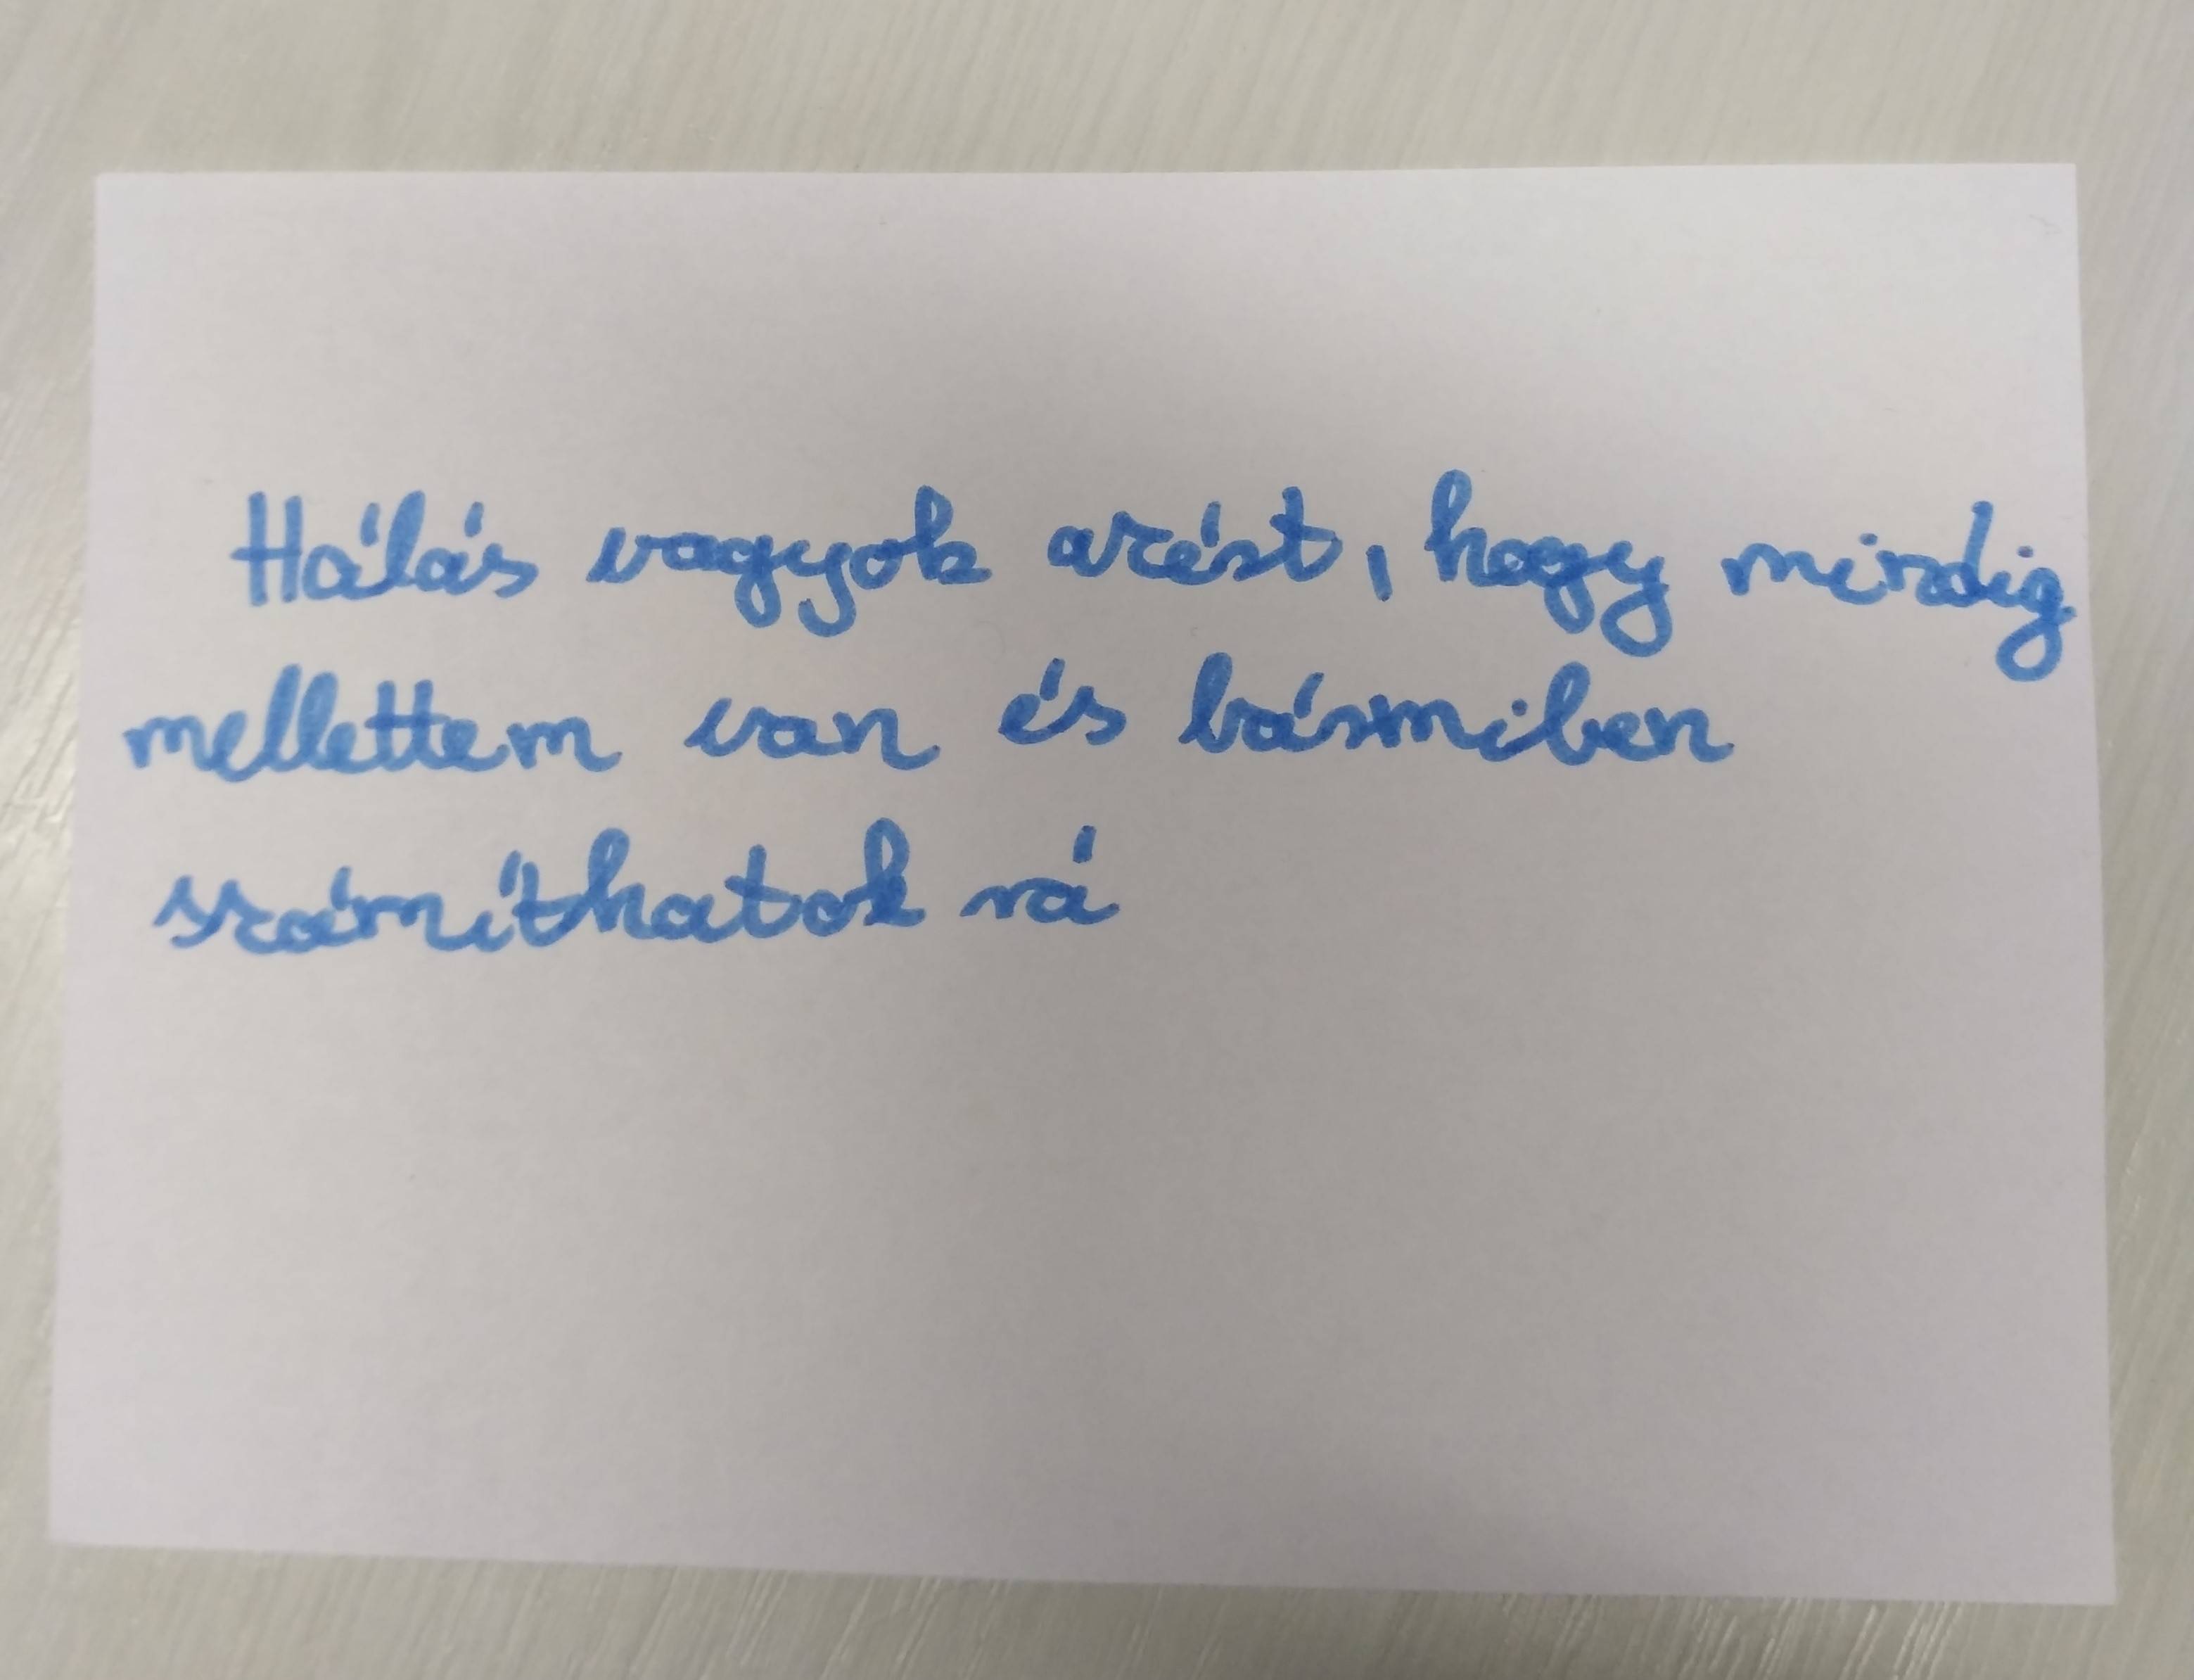 Hálás vagyok azért, hogy mindig
mellettem van és bármiben
számíthatok rá